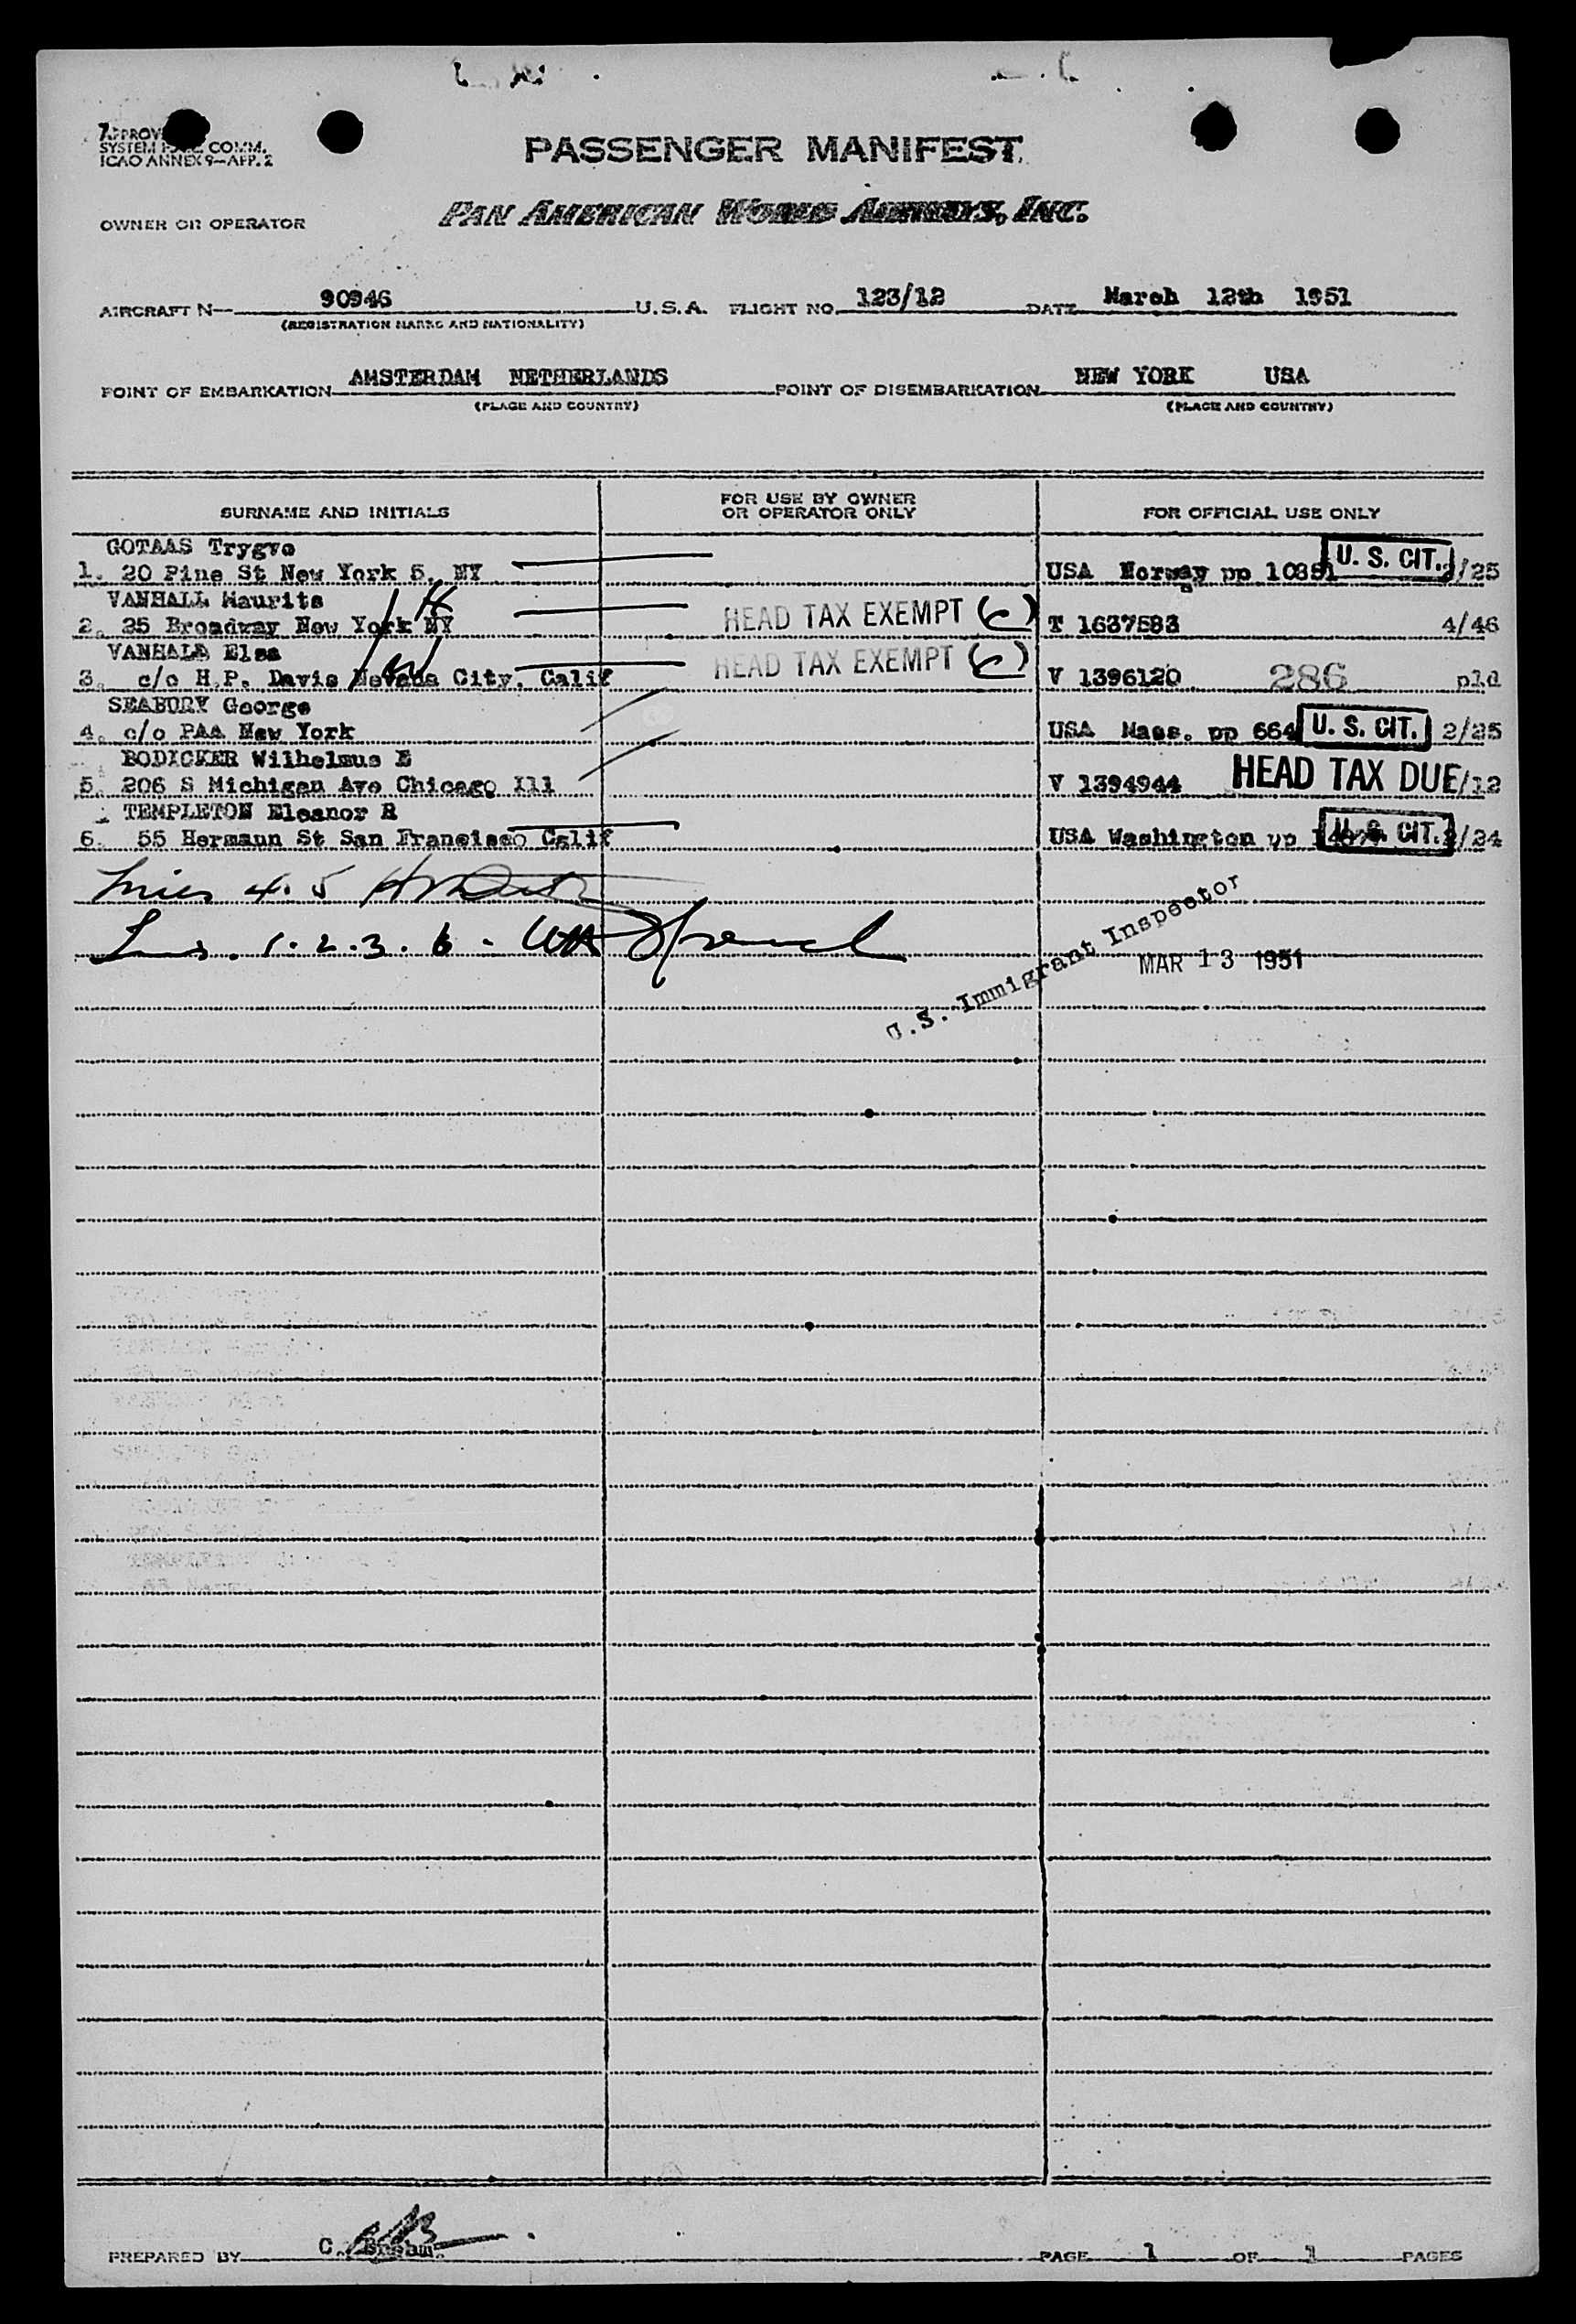 SYSTEM COMM.
ICAO ANNEX 9—APP. 2
PASSENGER MANIFEST
OWNER OR OPERATOR PAN AMERICAN WORLD AIRWAYS, INC.
AIRCRAFT N— 90946 U.S.A. FLIGHT NO. 123/12 DATE March 12th 1951
(REGISTRATION MARKS AND NATIONALITY)
POINT OF EMBARKATION AMSTERDAM NETHERLANDS POINT OF DISEMBARKATION NEW YORK USA
(PLACE AND COUNTRY) (PLACE AND COUNTRY)
SURNAME AND INITIALS FOR USE BY OWNER OR OPERATOR ONLY FOR OFFICIAL USE ONLY
GOTAAS Trygve
1. 20 Pine St New York 5, NY USA Norway pp U. S. CIT. /25
VANHALL Maurits
2. 25 Broadway New York NY HEAD TAX EXEMPT T 1637583 4/46
VANHALL Elsa
3. c/o H.P. Davis Nevada City, Calif HEAD TAX EXEMPT V 1396120 286 pld
SEABURY George
4. c/o PAA New York USA Mass. pp 664 U. S. CIT. 2/25
BODICKER Wilhelmus E
5. 206 S Michigan Ave Chicago Ill V 1394944 HEAD TAX DUE /12
TEMPLETON Eleanor R
6. 55 Hermann St San Francisco Calif USA Washington pp U. S. CIT. /24
Lines 4. 5
Lns. 1. 2. 3. 6 -
U.S. Immigrant Inspector
MAR 13 1951
PREPARED BY C. PAGE 1 OF 1 PAGES